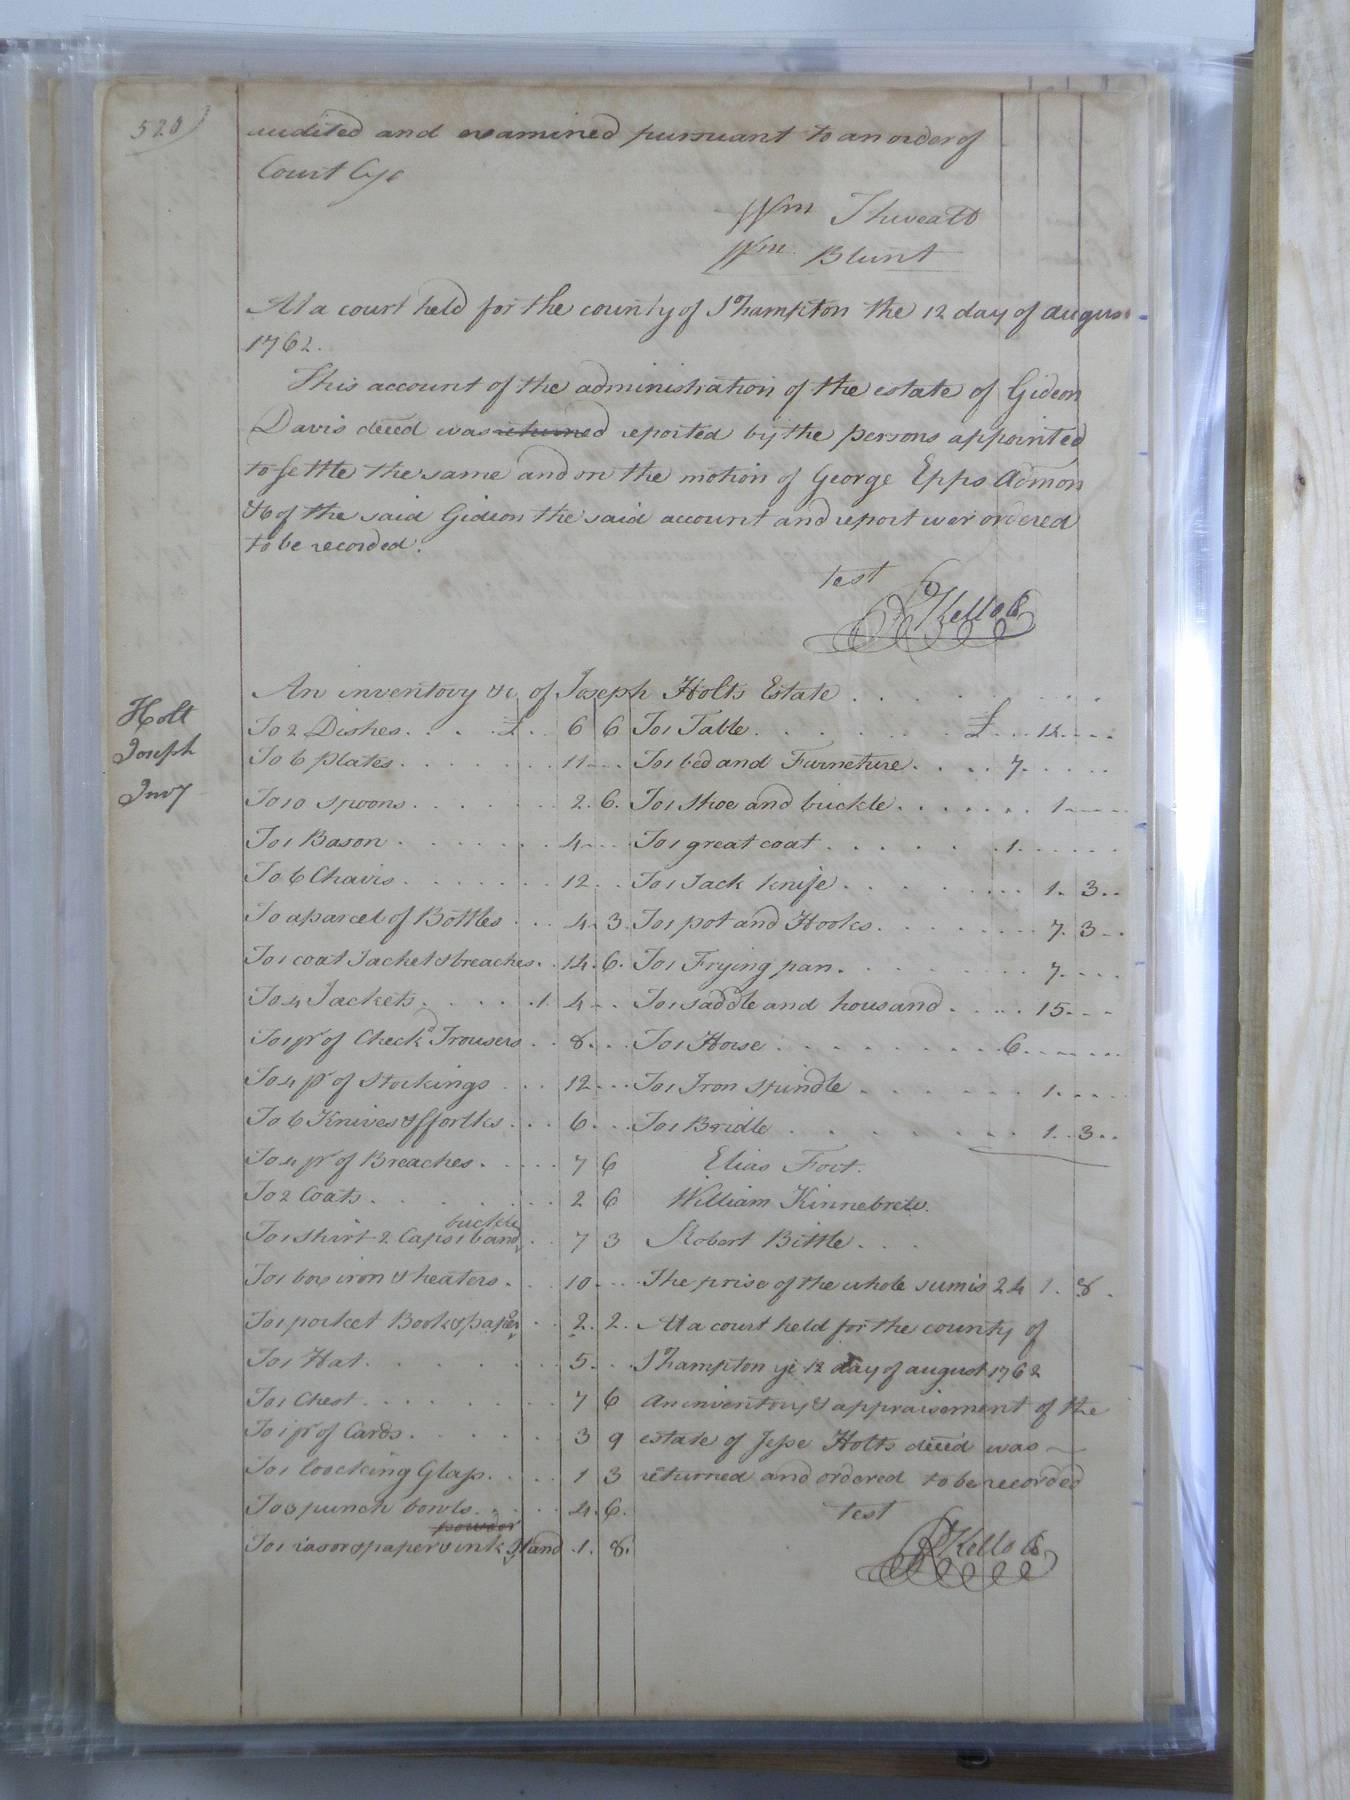 520)
audited and examined pursuant to an order of
Court
Wm Thweatt
Wm Blunt
At a court held for the county of S°hampton the 12 day of august
1762.
This account of the administration of the estate of Gideon
Davis deced was returned reported by the persons appointed
to settle the same and on the motion of George Epps Admon
&c of the said Gideon the said account and report wer ordered
to be recorded.
test
R Kello
Holt
Joseph
Invy
An inventory &c, of Joseph Holts Estate
To 2 Dishes £ 6 6
To 6 plates 11
To 10 spoons 2. 6.
To 1 Bason 4
To 6 Chairs 12
To a parcel of Bottles 4. 3.
To 1 coat Jacket & breaches 14. 6.
To 4 Jackets 1. 4
To 1 pr of Checkd Trousers 8
To 4 pr of Stockings 12
To 6 Knives & fforlks 6
To 4 pr of Breaches 7 6
To 2 Coats 2 6
buckle
To 1 shirt 2 Caps 1 band 7 3
To 1 box iron & heaters 10
To 1 pocket Book & paper 2. 2.
To 1 Hat 5
To 1 Chest 7 6
To 1 pr of Cards 3 9
To 1 loocking Glass 1 3
To 3 punch bowls 4. 6.
powder
To 1 rasor & paper & ink stand 1. 8.
To 1 Table £ 12
To 1 bed and Furneture 7
To 1 shoe and buckle 1
To 1 great coat 1
To 1 Jack knife 1. 3
To 1 pot and Hooks 7. 3
To 1 Frying pan 7
To 1 saddle and housand 15
To 1 Horse 6
To 1 Iron spindle 1
To 1 Bridle 1. 3
Elias Fort.
William Kinnebrew.
Robert Bittle
The prise of the whole sum is 24 1. 8.
At a court held for the county of
S°hampton ye 12 day of august 1762
An inventory & appraisement of the
estate of Jesse Holts deced was
returned and ordered to be recorded
test
R Kello